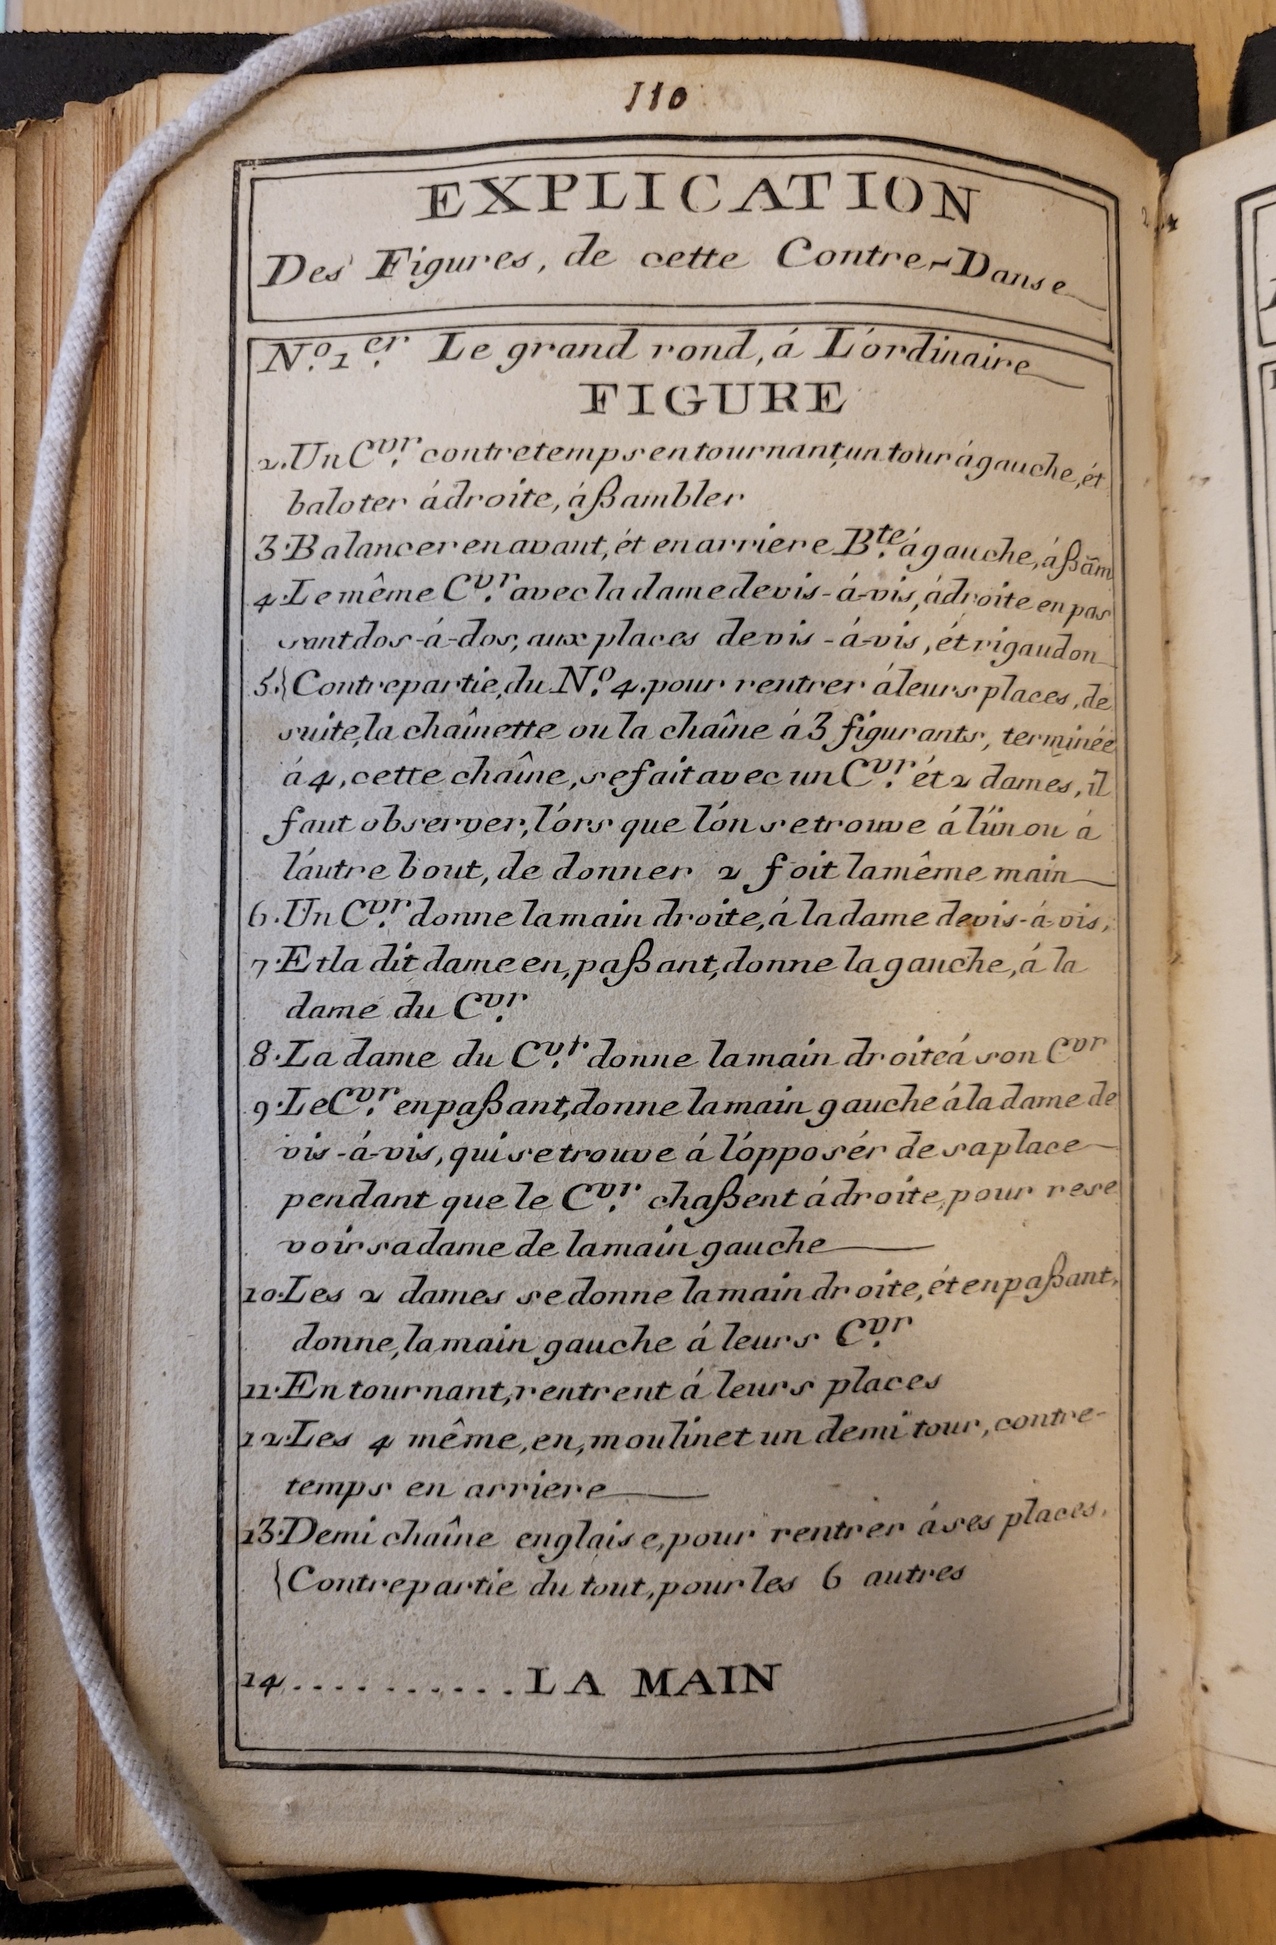 110
EXPLICATION
Des Figures, de cette Contre-Danse
N.º 1.er Le grand rond, á L'órdinaire
FIGURE
2. Un C.vr contretemps en tournant, un tour á gauche, ét
baloter á droite, áßambler
3. Balancer en avant, ét en arriere B.te á gauche, áßãm
4. Le même C.vr avec la dame de vis-á-vis, á droite en pas
sant dos-á-dos, aux places de vis-á-vis, ét rigaudon
5. Contrepartie, du N.º 4. pour rentrer á leurs places, de
suite, la chaînette ou la chaîne á 3 figurants, terminée
á 4, cette chaîne, se fait avec un C.vr ét 2 dames, il
faut observer, l'órs que l'ón se trouve á l'ün ou á
l'áutre bout, de donner 2 foit la même main
6. Un C.vr donne la main droite, á la dame de vis-á-vis,
7. Et la dit dame en, paßant, donne la gauche, á la
dame du C.vr
8. La dame du C.vr donne la main droite á son C.vr
9. Le C.vr en paßant, donne la main gauche á la dame de
vis-á-vis, qui se trouve á l'ópposér de sa place
pendant que le C.vr chaßent á droite, pour rese
voir sa dame de la main gauche
10. Les 2 dames se donne la main droite, ét en paßant,
donne, la main gauche á leurs C.vr
11. En tournant, rentrent á leurs places
12. Les 4 même, en, moulinet un demi tour, contre-
temps en arriere
13. Demi chaîne englaise, pour rentrer á ses places,
{Contrepartie du tout, pour les 6 autres
14. . . . . . . . . . . LA MAIN